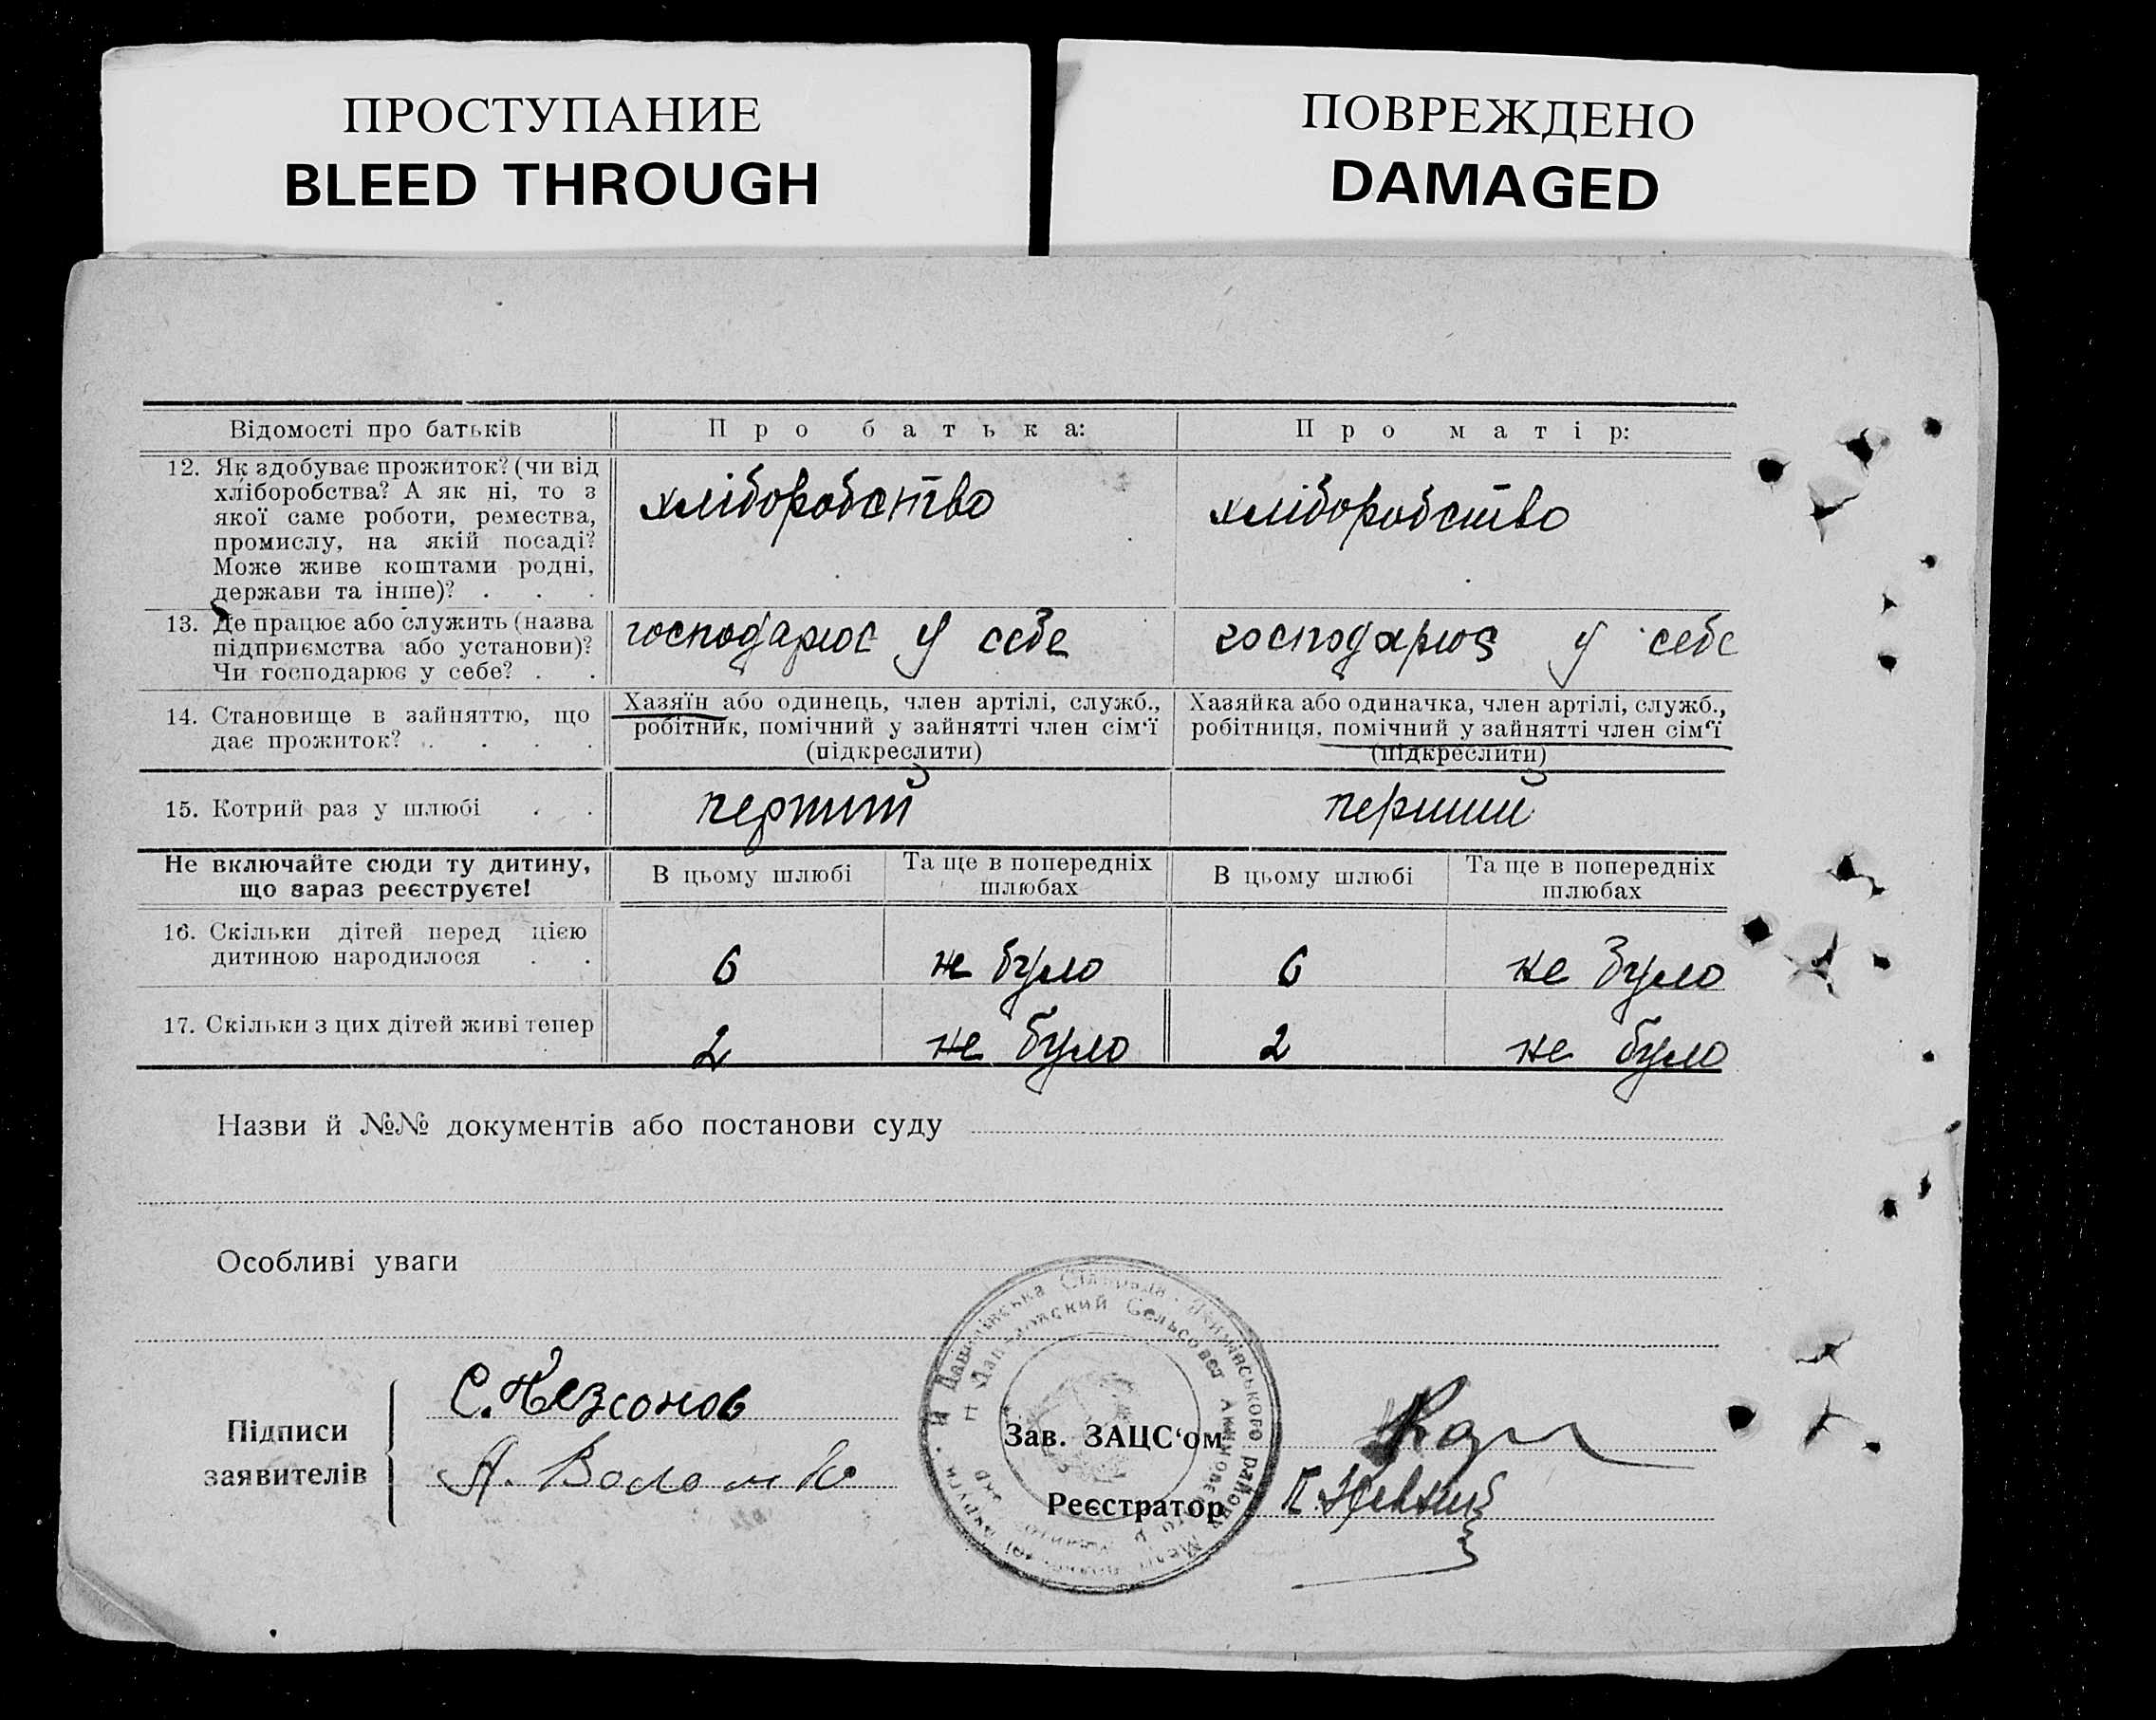 ПРОСТУПАНИЕ
BLEED THROUGH
ПОВРЕЖДЕНО
DAMAGED
Відомості про батьків
Про батька:
Про матір:
12. Як здобуває прожиток? (чи від
хліборобства? А як ні, то з
якої саме роботи, ремества,
промислу, на якій посаді?
Може живе коштами родні,
держави та інше)? . . .
хліборобство
хліборобство
13. Де працює або служить (назва
підприємства або установи)?
Чи господарює у себе? . .
господарює у себе
господарює у себе
14. Становище в зайняттю, що
дає прожиток? . . . .
Хазяїн або одинець, член артілі, служб.,
робітник, помічний у зайнятті член сім‘ї
(підкреслити)
Хазяйка або одиначка, член артілі, служб.,
робітниця, помічний у зайнятті член сім‘ї
(підкреслити)
15. Котрий раз у шлюбі . .
перший
перший
Не включайте сюди ту дитину,
що зараз реєструєте!
В цьому шлюбі
Та ще в попередніх
шлюбах
В цьому шлюбі
Та ще в попередніх
шлюбах
16. Скільки дітей перед цією
дитиною народилося . .
6
не було
6
не було
17. Скільки з цих дітей живі тепер
2
не було
2
не було
Назви й №№ документів або постанови суду
Особливі уваги
Підписи
заявителів
С.
А.
Зав. ЗАЦС‘ом
Реєстратор
П.
Сільрада Якимівського району
Сельсовет